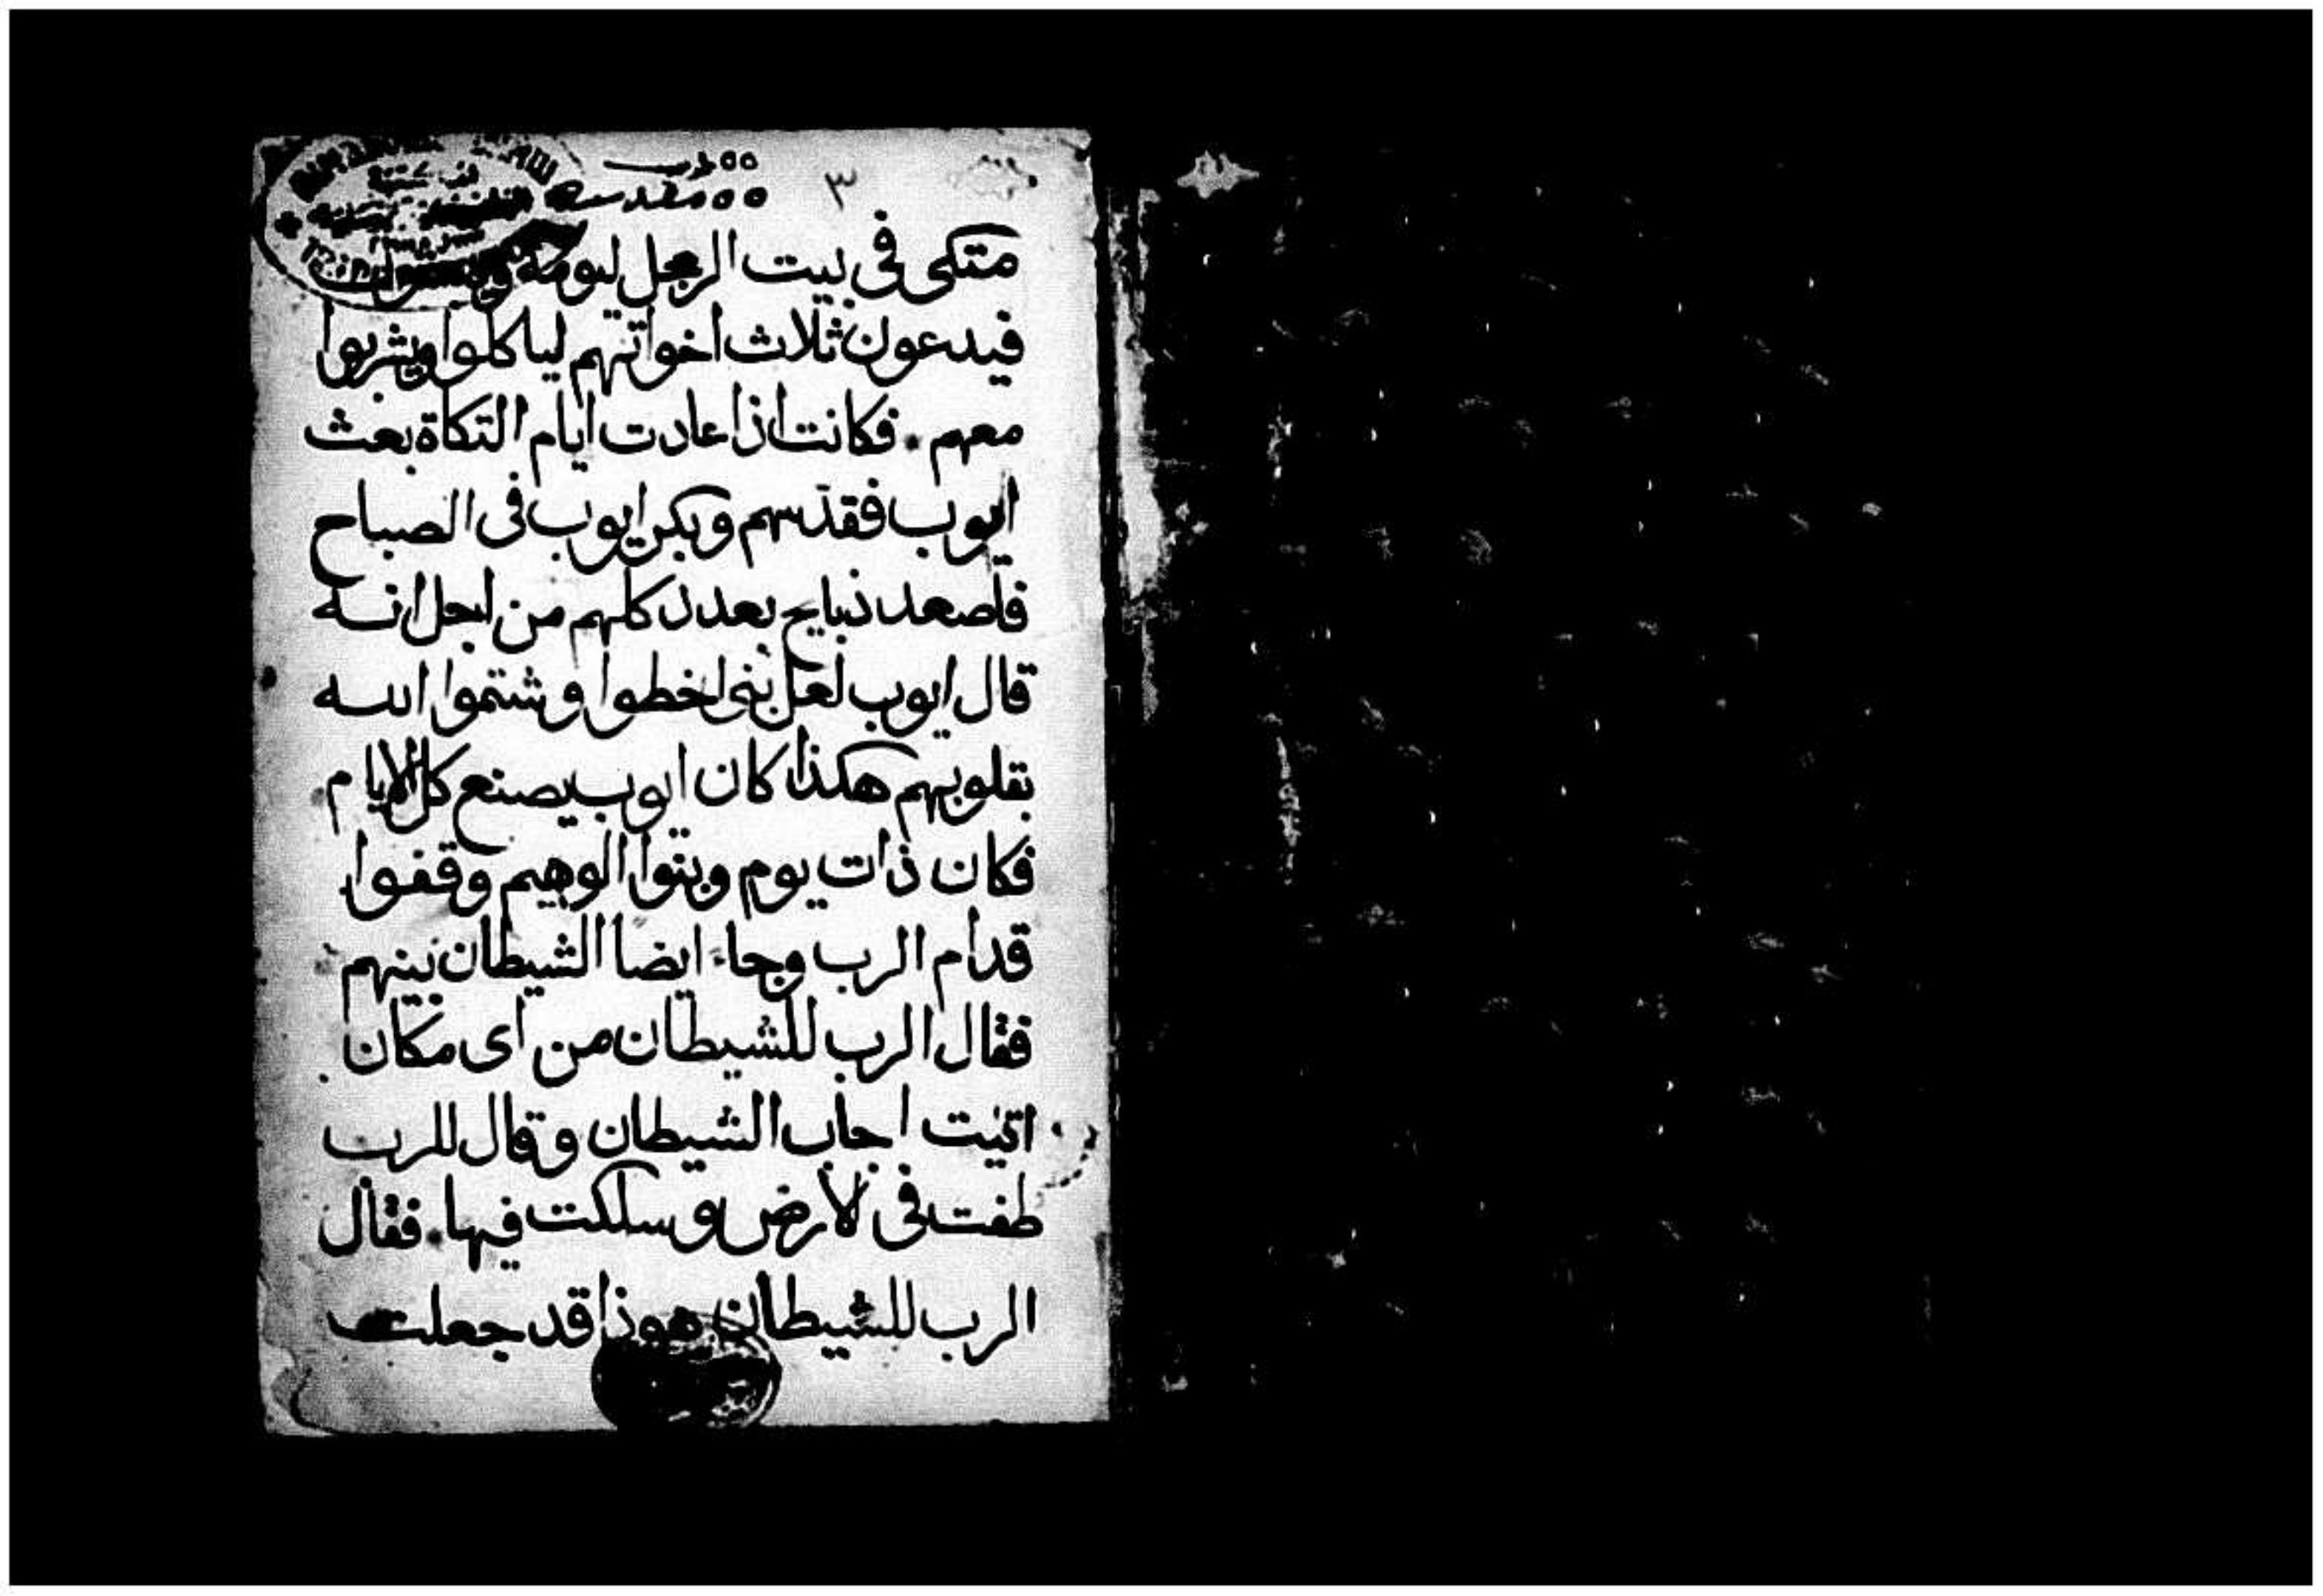 ٣
٥٥ طب
٥٥ مقدسه
متكى فى بيت الرجل ليومه
فيدعون ثلاث اخواتهم لياكلوا ويشربوا
معهم . فكانت اذا عادت ايام التكاة بعث
ايوب فقدسهم وبكر ايوب فى الصباح
فاصعد ذبايح بعدد كلهم من اجل انه
قال ايوب لعل بنى اخطوا وشتموا الله
بقلوبهم هكذا كان ايوب يصنع كل الايام
فكان ذات يوم وبنوا الوهيم وقفوا
قدام الرب وجاء ايضا الشيطان بينهم
فقال الرب للشيطان من اى مكان
اتيت اجاب الشيطان وقال للرب
طفت فى الارض وسلكت فيها . فقال
الرب للشيطان هوذا قد جعلت